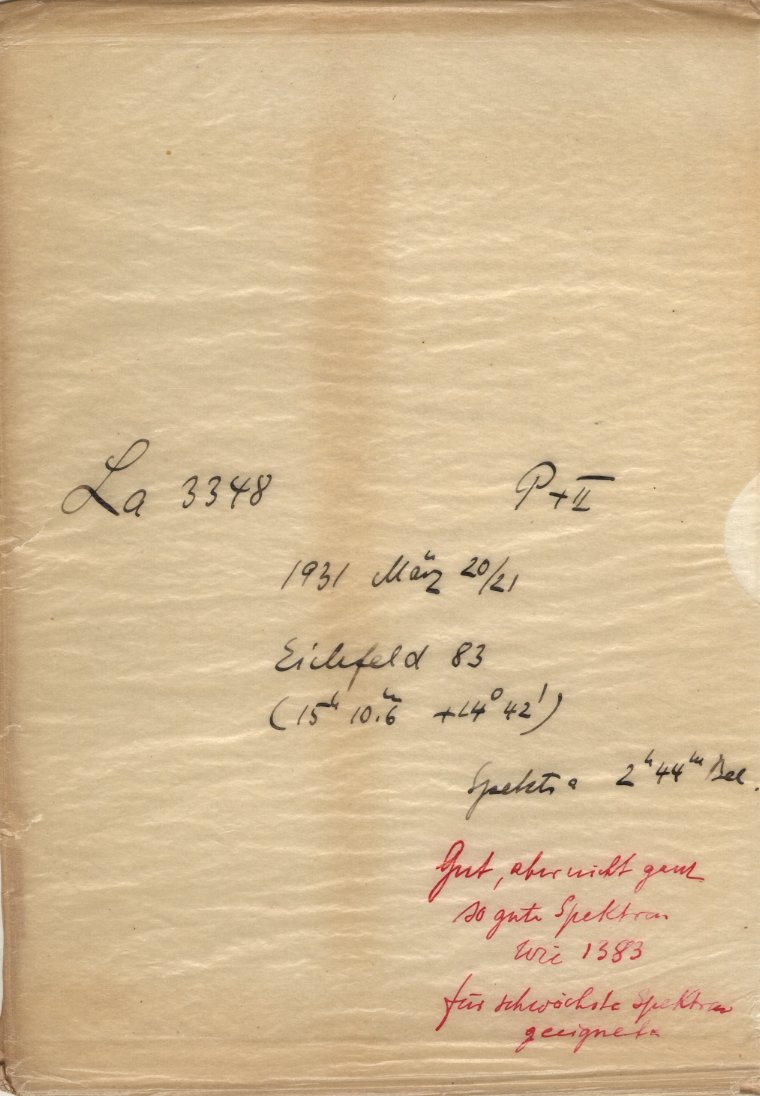 La 3348 P+II
1931 März 20/21
Eichfeld 83
(15h 10.6m +14° 42')
Spektra 2h44m Bel.
Gut, aber nicht ganz
so gute Spektren
wie 1383
für schwächste Spektren
geeignet